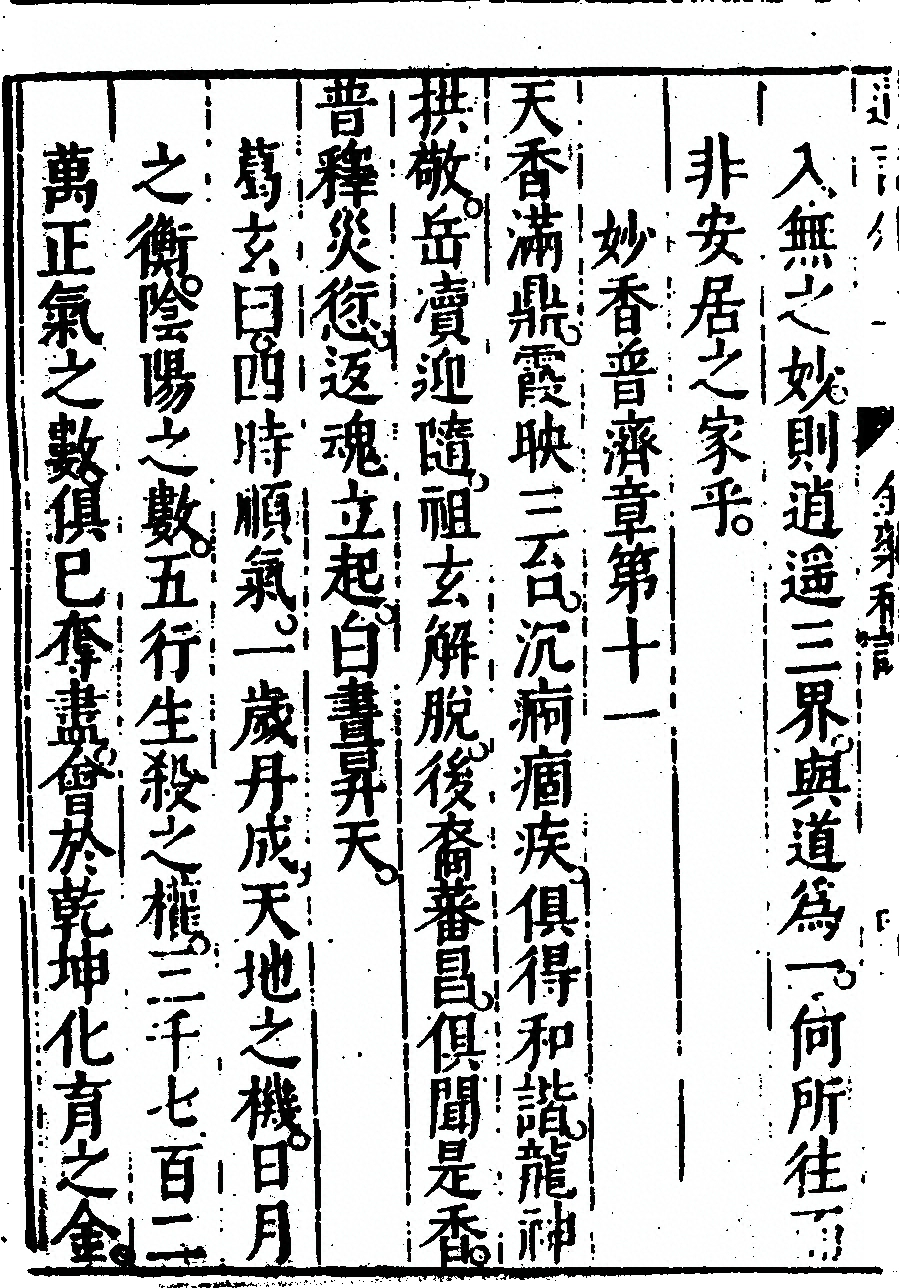 入無之妙則逍遥三界與道為一何所往而
非安居之家乎
妙香普濟章第十一
天香滿鼎霞映三台沉痾痼疾俱得和諧龍神
拱敬岳瀆迎隨祖玄解脫後裔蕃昌俱聞是香
普釋災愆返魂立起白晝昇天
葛玄曰四時順氣一歲丹成天地之機日月
之衡陰陽之數五行生殺之權三千七百二
萬正氣之數俱已奪盡會於乾坤化育之金